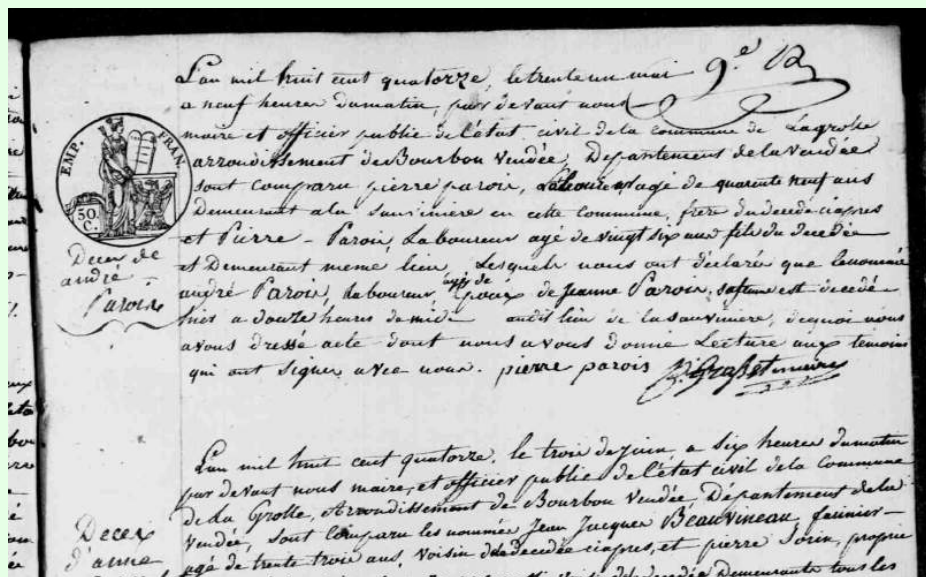 L'an mil huit cent quatorze, le trente un mai
9.e
a neuf heures du matin, par devant nous
maire et officier public de l'état civil de la commune de Lagrolle
arrondissement de Bourbon Vendée, Département de la Vendée
sont comparu pierre parois, agé de quarente neuf ans
Demeurant a la Sauviniere en cette commune, frere du decedé ciapres
et Pierre - Parois, Laboureur agé de vingt six ans fils du decedée
et Demeurant meme lieu, Lesquels nous ont déclaré que le nommé
andré Parois, laboureur époux de Jeanne Parois, sa femme est decedé
hier a douze heures de midi audit lieu de la sauviniere, de quoi nous
avons dressé acte dont nous avons donné Lecture aux temoins
qui ont signer avec nous. pierre parois
EMP. FRAN.
50.
C.
Deces de
andré
Parois
L'an mil huit cent quatorze, le trois de juin, a six heures du matin
par devant nous maire, et officier public de l'état civil de la Commune
de La Grolle, Arrondissement de Bourbon Vendée, Département de la
Vendée, sont Comparu les nommés Jean Jacques Beauvineau, farinier-
agé de trente trois ans, voisin de la decedée ciapres, et pierre Sorin, proprie
Deces
d'anne
decedée Demeurants tous les